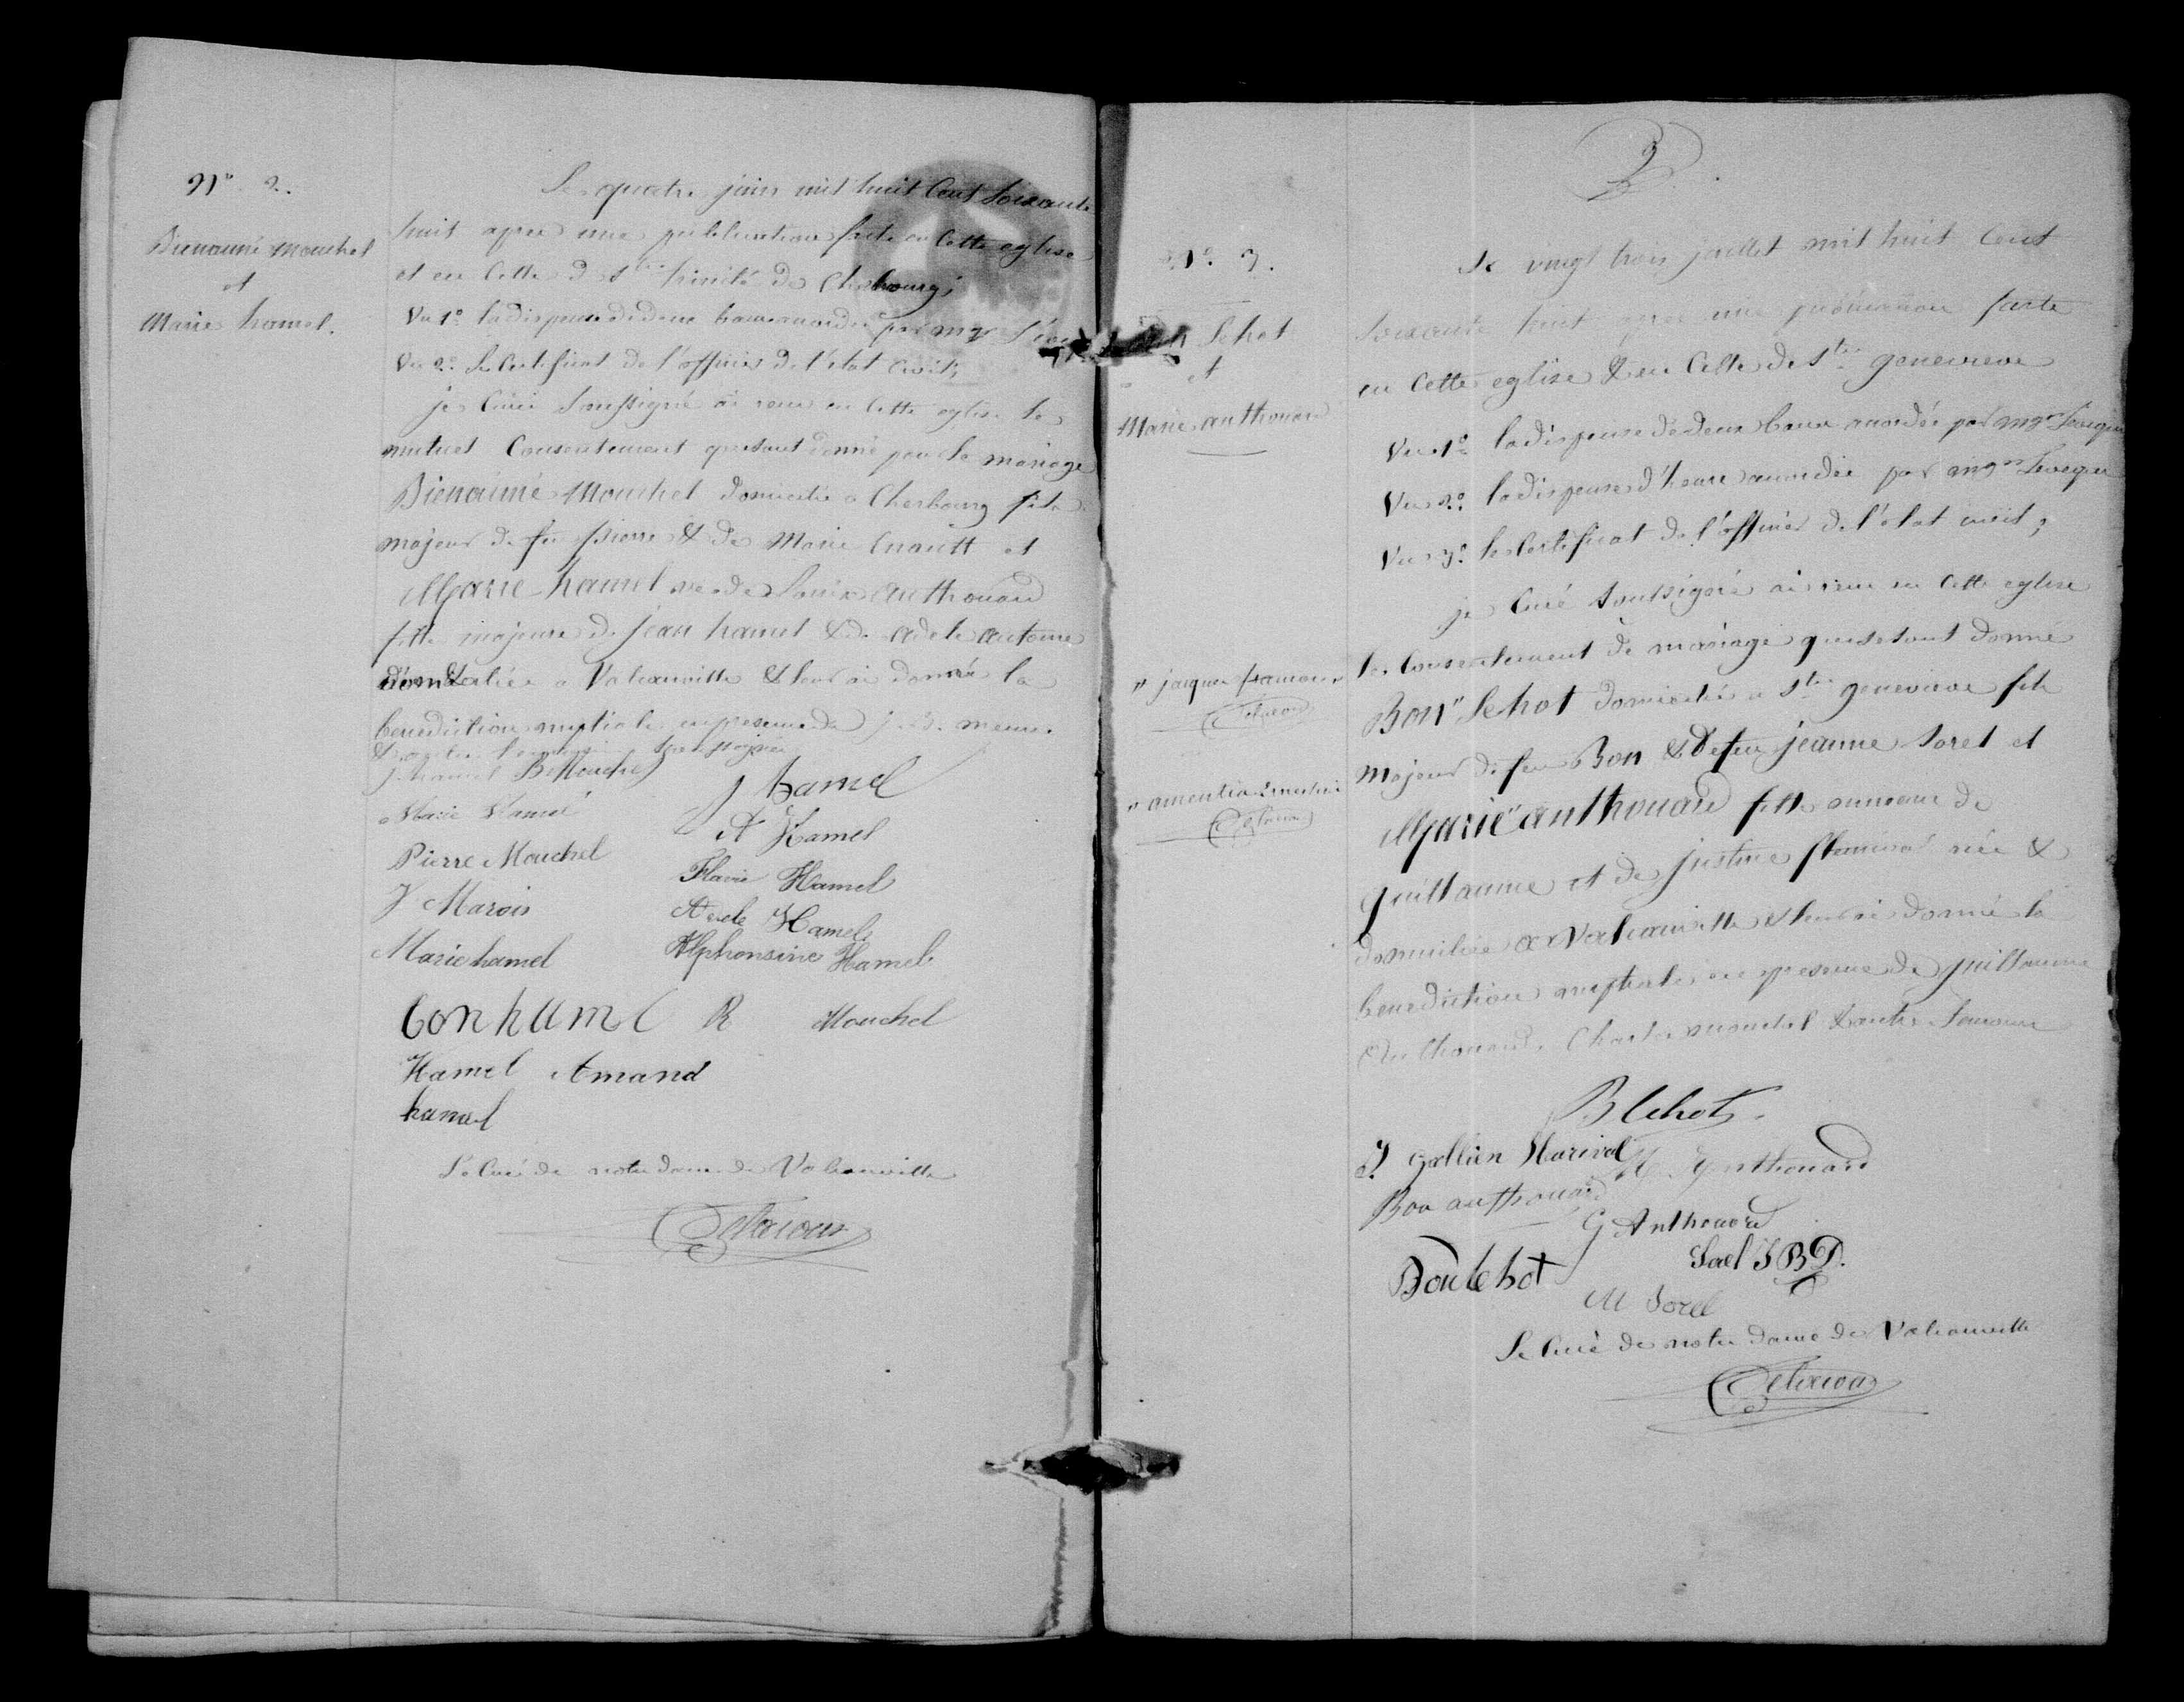 N° 2.
Bienaimé Mouchel
et
Marie hamel.
Le quatre juin mil huit Cent Soixante
huit apres une publication faite en Cette eglise
et en Celle de Ste trinité de Cherbourg;
Vu 1° la dispense de deux bans accordée par mgr
Vu 2° le Certificat de l'officier de l'état Civil;
je Curé Soussigné ai recu en Cette eglise le
mutuel Consentement que se sont donné pour le mariage
Bienaimé Mouchel domicilié a Cherbourg fils
majeur de feu pierre & de Marie et
Marie hamel ve de Louis anthouard
fille majeure de jean hamel & d. adele antoine
domiciliée a Valcanville & leur ai donné la
benediction nuptiale en presence de
& soussignés
j. hamel B Mouchel
J hamel
Marie Hamel
A Hamel
Pierre Mouchel
Flavie Hamel
J Marois
Adele Hamel
Marie hamel
Alphonsine Hamel
bon hamel R Mouchel
Hamel Amand
hamel
Le Curé de notre dame de Valcanville
3
N° 3.
Lehot
et
Marie anthouard
" jacques francois "
" amentia
Le vingt trois juillet mil huit Cent
Soixante huit apres une publication faite
en Cette eglise & en Celle de Ste genevieve
Vu 1° la dispense de deux bans accordée par mgr Leveque
Vu 2° la dispense d'heure accordée par mgr Leveque
Vu 3° le Certificat de l'officier de l'état civil;
je Curé Soussigné ai recu en Cette eglise
le Consentement de mariage que se sont donné
Bon " Lehot domicilié a Ste genevieve fils
majeur de feu Bon & de feu jeanne Sorel et
Marie " anthouard fille mineure de
guillaume et de justine née &
domiciliée a Valcanville & leur ai donné la
benediction nuptiale en presence de guillaume
Anthouard, Charles mouchel & autres temoins
B Lehot.
J. Gallien Marival M. Anthouard
Bon anthouard
G Anthouard
Bon lehot
Sorel J B D.
M Sorel
Le Curé de notre dame de Valcanville